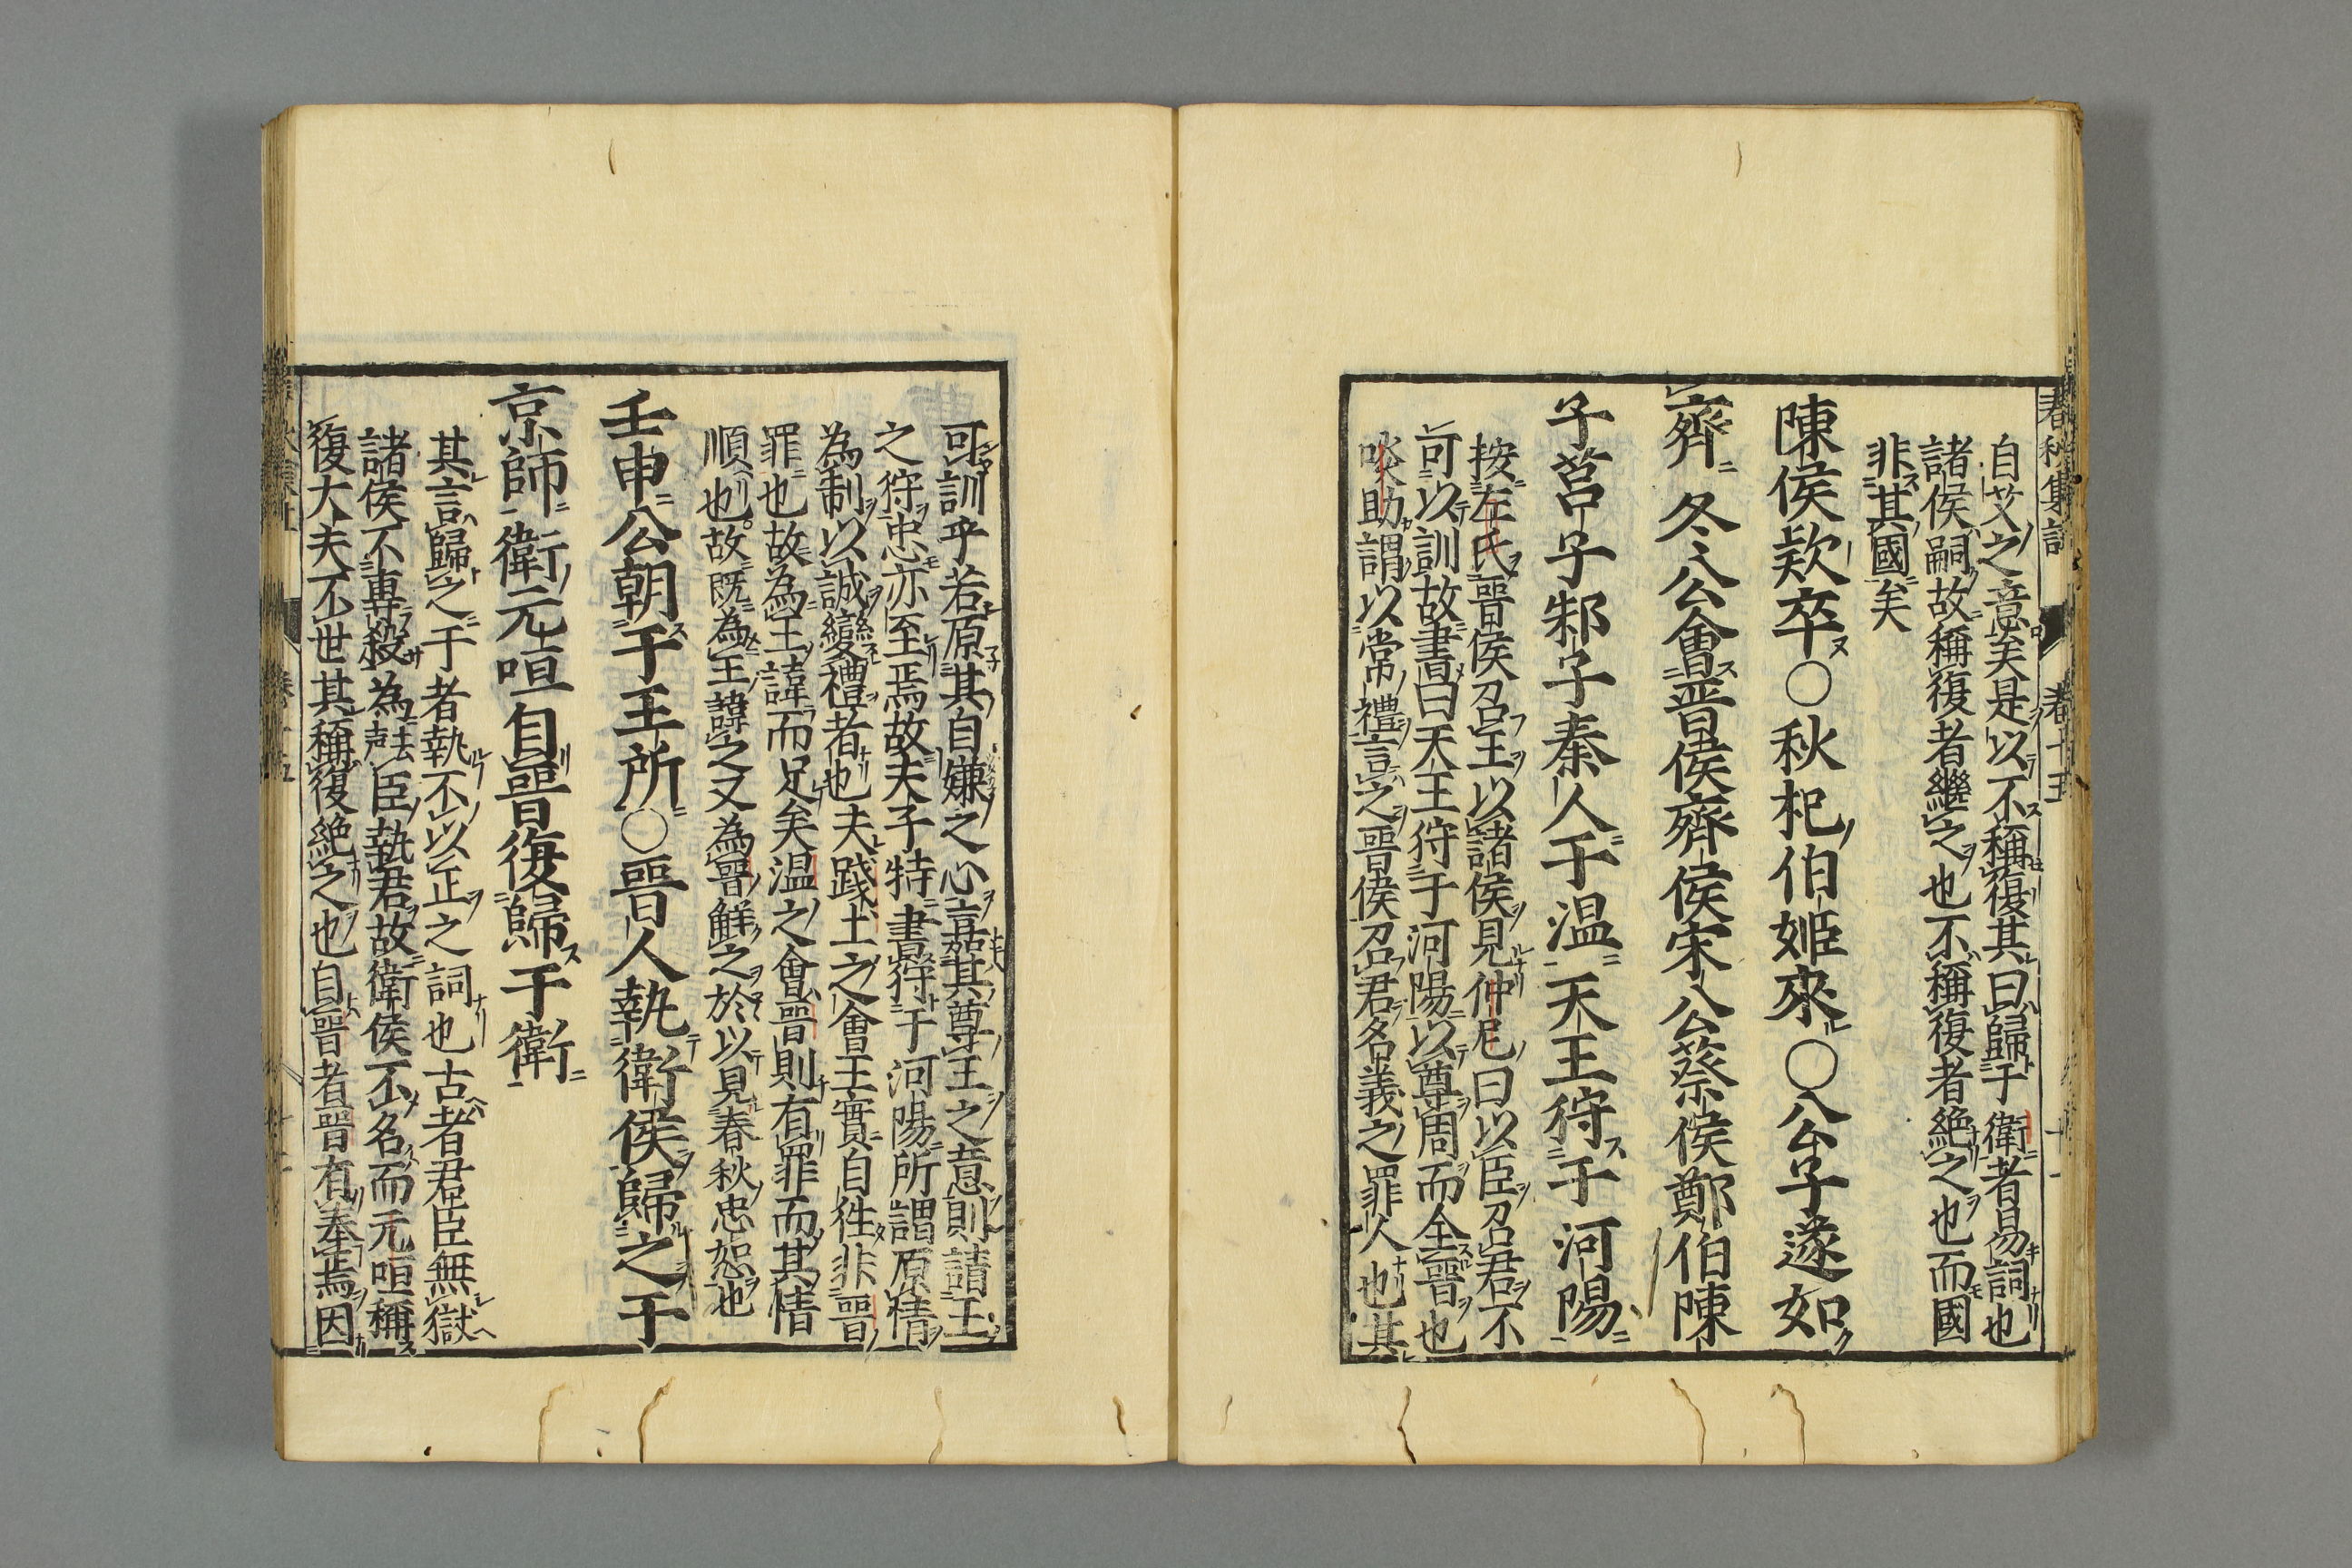 春秋集註 卷十五 十一
自艾之意矣是以不稱復其曰歸于衛者易詞也
諸侯嗣故稱復者繼之也不稱復者絶之也而國
非其國矣
陳侯欵卒〇秋杞伯姬來〇公子遂如
齊 冬公會晉侯齊侯宋公蔡侯鄭伯陳
子莒子邾子秦人于温天王狩于河陽
按左氏晉侯召王以諸侯見仲尼曰以臣召君不
可以訓故書曰天王狩于河陽以尊周而全晉也
啖助謂以常禮言之晉侯召君名義之罪人也其
可訓乎若原其自嫌之心嘉其尊王之意則請王
之狩忠亦至焉故夫子特書狩于河陽所謂原情
為制以誠變禮者也夫踐土之會王實自徃非晉
罪也故為王諱而足矣温之會晉則有罪而其情
順也故既為王諱之又為晉觧之於以見春秋忠恕也
壬申公朝于王所〇晉人執衛侯歸之于
京師 衛元咺自晉復歸于衛
其言歸之于者執不以正之詞也古者君臣無獄
諸侯不專殺為臣執君故衛侯不名而元咺稱
復大夫不世其稱復絶之也自晉者晉有奉焉因